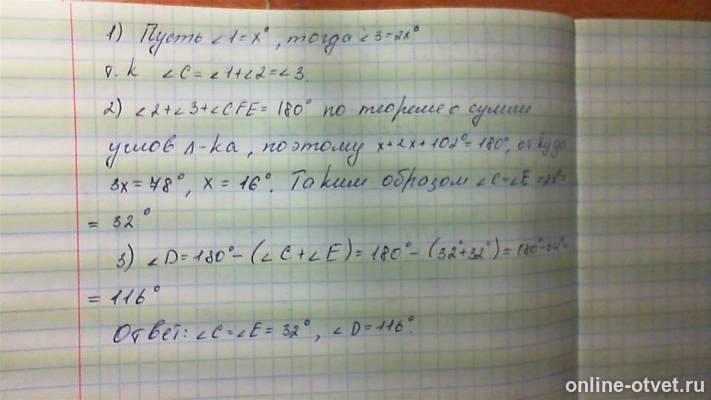 1) Пусть ∠1=x°, тогда ∠3=2x°
т.к ∠C=∠1+∠2=∠3.
2) ∠2+∠3+∠CFE=180° по теореме о сумме
углов Δ-ка, поэтому x+2x+102°=180°, откуда
3x=78°, x=16°. Таким образом ∠C=∠E=2x=
=32°
3) ∠D=180°-(∠C+∠E)=180°-(32°+32°)=180°-64°=
=116°
Ответ: ∠C=∠E=32°, ∠D=116°.
online-otvet.ru